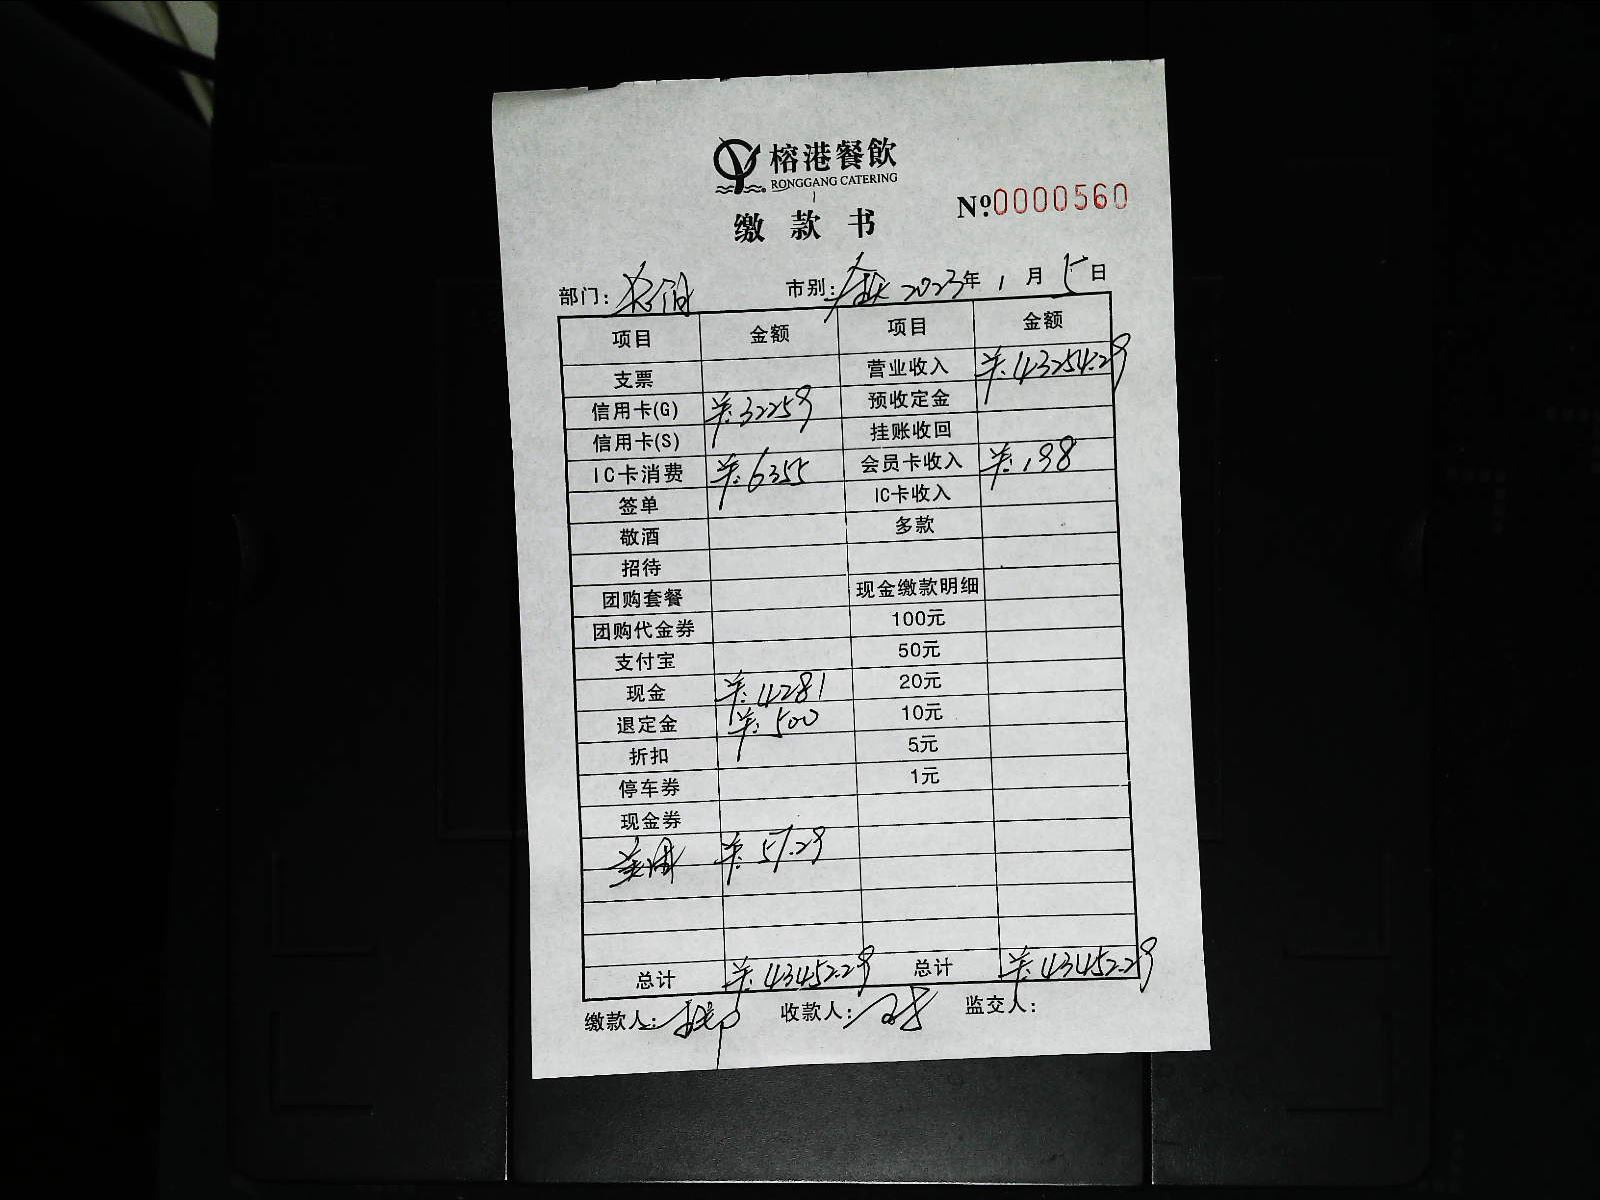 榕港餐飲
RONGGANG CATERING
缴款书
№0000560
部门: 市别: 2023年1月5日
项目 金额 项目 金额
支票 营业收入 ¥:43254.29
信用卡(G) ¥:32259 预收定金
信用卡(S) 挂账收回
IC卡消费 ¥:6355 会员卡收入 ¥:198
签单 IC卡收入
敬酒 多款
招待
团购套餐 现金缴款明细
团购代金券 100元
支付宝 50元
现金 ¥:4281 20元
退定金 ¥:500 10元
折扣 5元
停车券 1元
现金券
美团 ¥:57.29
总计 ¥:43452.29 总计 ¥:43452.29
缴款人: 收款人: 监交人: